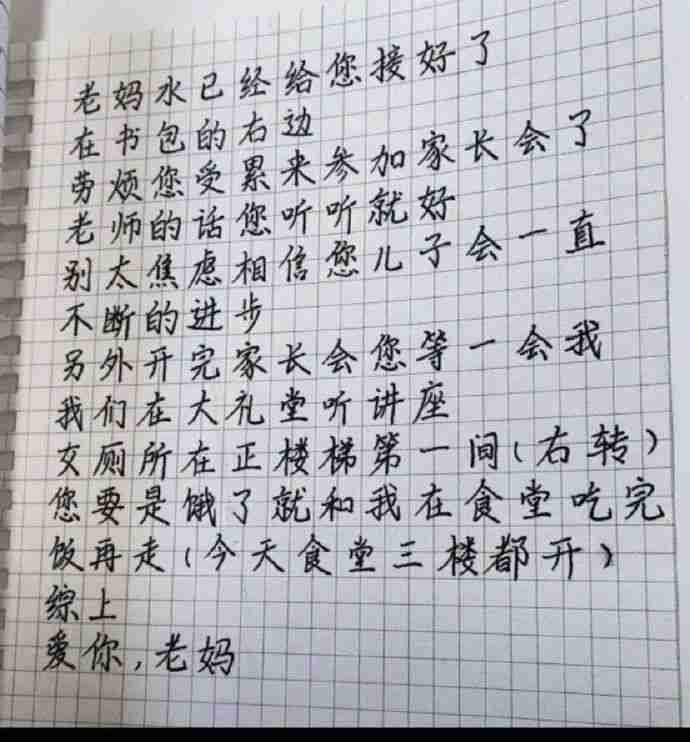 老妈水已经给您接好了
在书包的右边
劳烦您受累来参加家长会了
老师的话您听听就好
别太焦虑相信您儿子会一直
不断的进步
另外开完家长会您等一会我
我们在大礼堂听讲座
女厕所在正楼梯第一间(右转)
您要是饿了就和我在食堂吃完
饭再走(今天食堂三楼都开)
综上
爱你,老妈